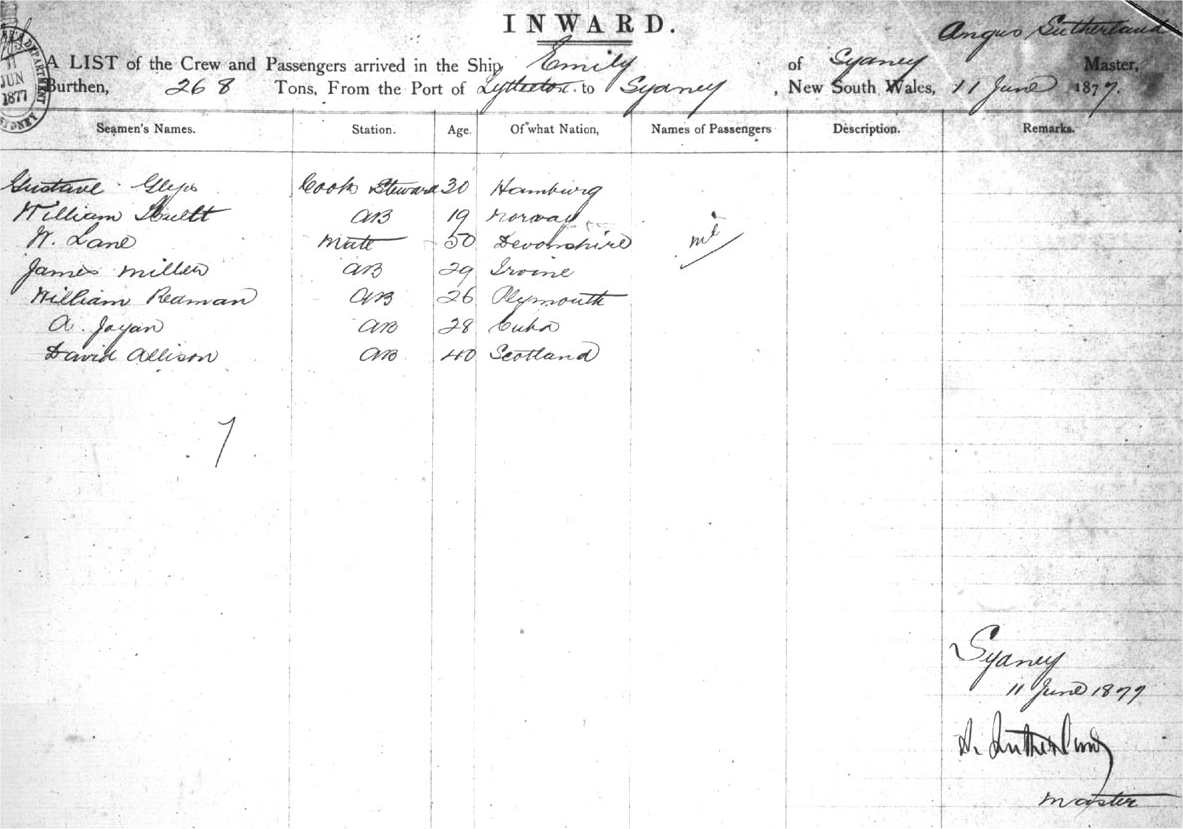 INWARD.
Angus Sutherland
A LIST of the Crew and Passengers arrived in the Ship Emily of Sydney Master,
Burthen, 268 Tons, From the Port of Lyttelton to Sydney, New South Wales, 11 June 1877.
DEPARTMENT
11
JUN
1877
Seamen's Names. Station. Age. Of what Nation, Names of Passengers Description. Remarks.
Gustave Cook Steward 30 Hamburg
William AB 19 Norway
W. Lane Mate 50 Devonshire nil
James Miller AB 29 Irvine
William Redman AB 26 Plymouth
A. Jayan AB 28 Cuba
David Allison AB 40 Scotland
7
Sydney
11 June 1877
A. Sutherland
Master